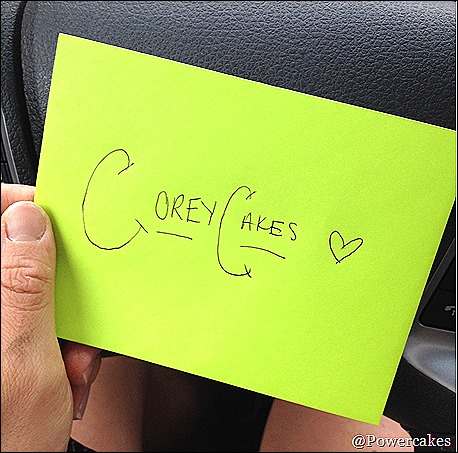 COREY CAKES ♡
@Powercakes